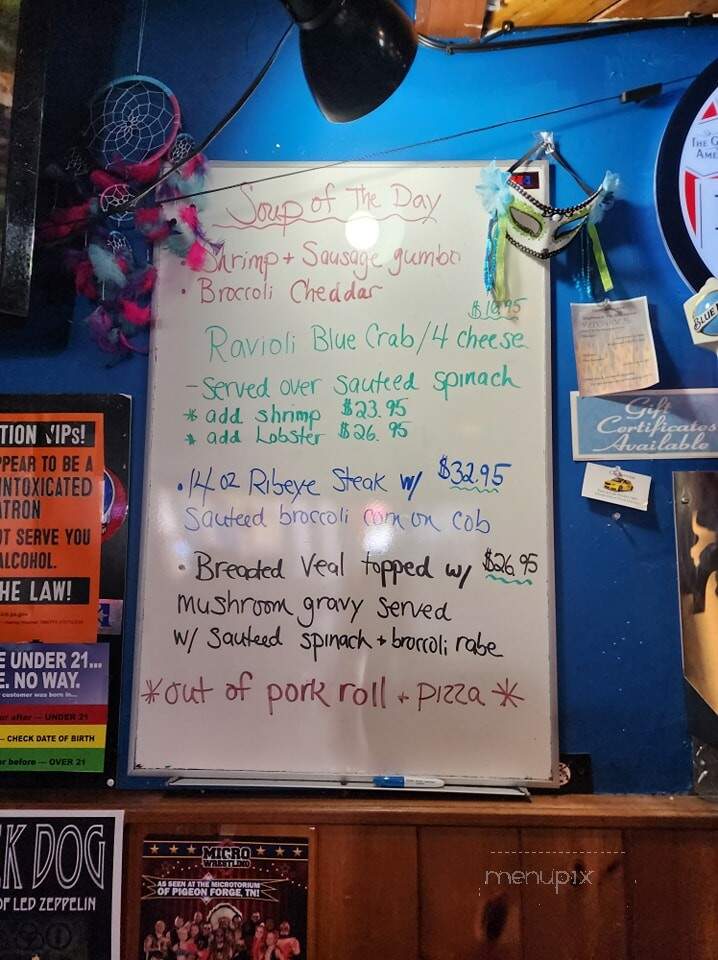 Soup of The Day
Shrimp + Sausage gumbo
• Broccoli Cheddar
Ravioli Blue Crab/4 cheese
- Served over sauteed spinach
* add shrimp $23.95
* add Lobster $26.95
• 14 oz Ribeye Steak w/ $32.95
Sauteed broccoli corn on cob
• Breaded Veal topped w/ $26.95
mushroom gravy served
w/ Sauteed spinach + broccoli rabe
*out of pork roll + Pizza *
TION VIPs!
PPEAR TO BE A
INTOXICATED
ATRON
OT SERVE YOU
ALCOHOL.
HE LAW!
E UNDER 21...
E. NO WAY.
customer was born in...
or after — UNDER 21
— CHECK DATE OF BIRTH
or before — OVER 21
CK DOG
OF LED ZEPPELIN
MICRO
WRESTLING
AS SEEN AT THE MICROTORIUM
OF PIGEON FORGE, TN!
THE G
AME
BLUE
Gift
Certificates
Available
menupix